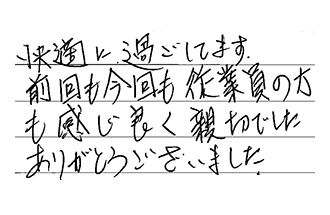 快適に過ごしてます.
前回も今回も従業員の方
も感じ良く親切でした
ありがとうございました.